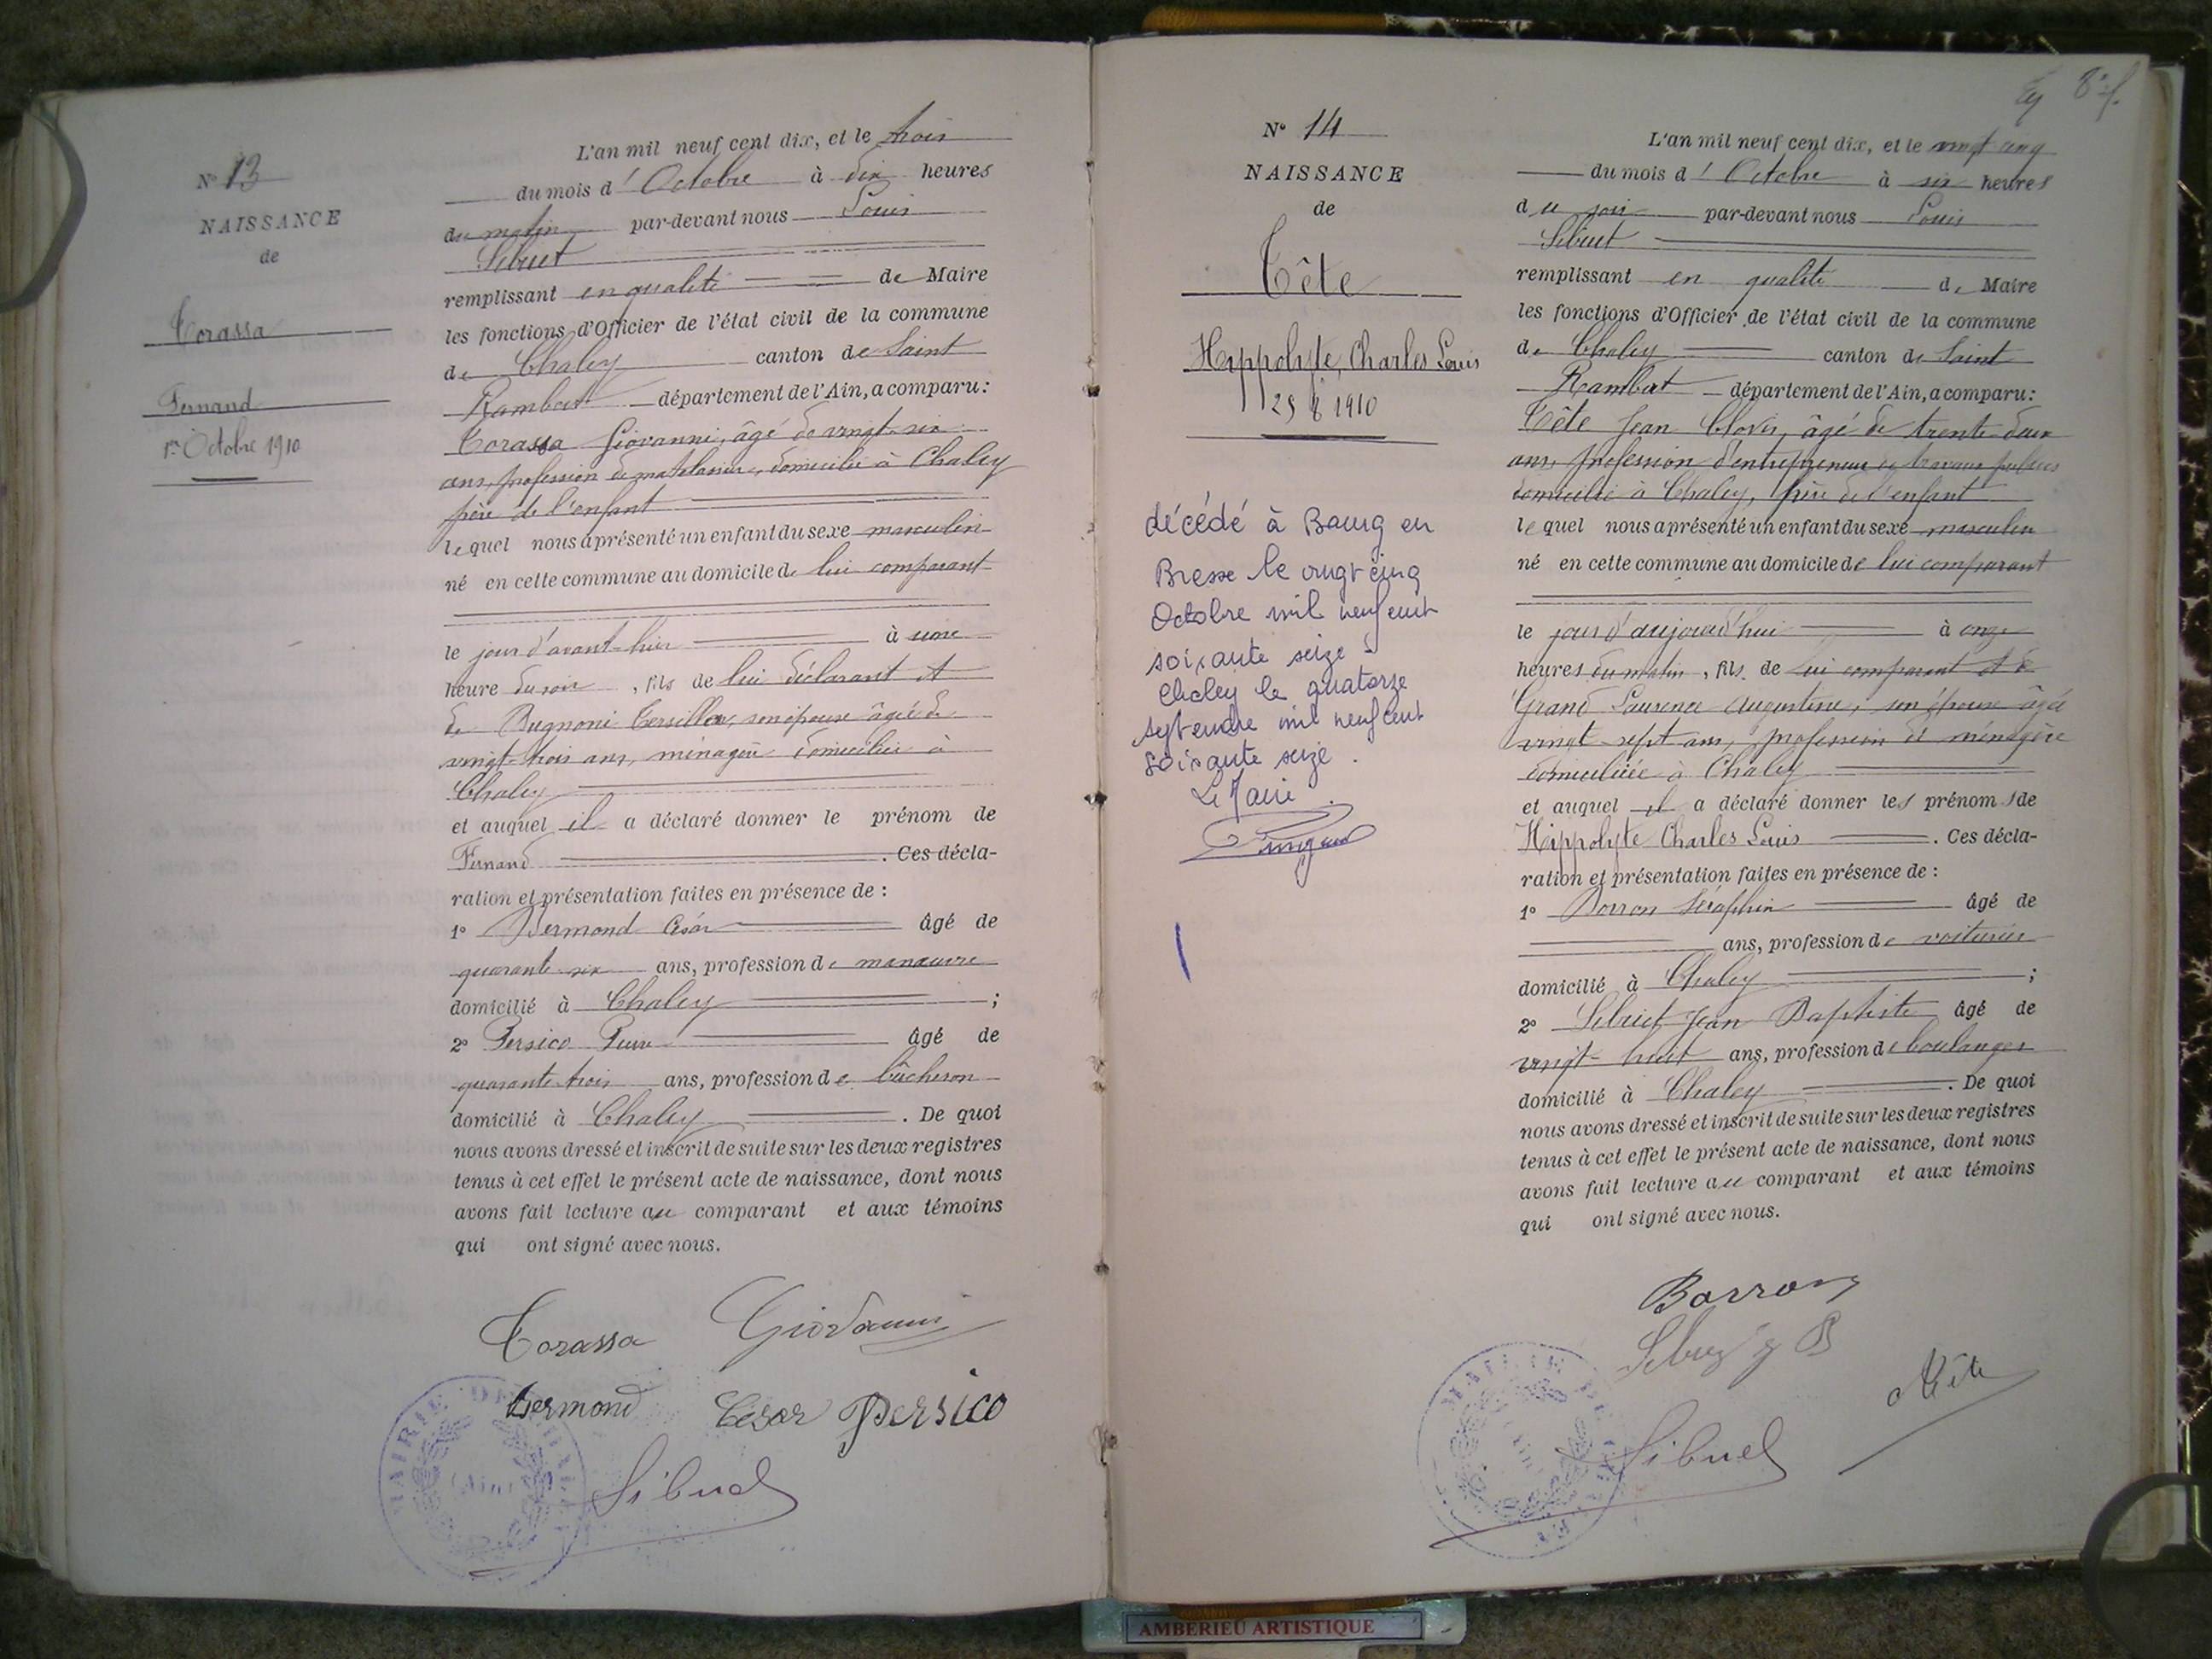 N° 13
NAISSANCE
de
Torassa
Fernand
1er Octobre 1910
L'an mil neuf cent dix, et le trois
du mois d'Octobre à dix heures
du matin par-devant nous Louis
Sibuet
remplissant en qualité de Maire
les fonctions d'Officier de l'état civil de la commune
de Chaley canton de Saint
Rambert département de l'Ain, a comparu :
Torassa Giovanni, âgé de vingt-six
ans, profession de domicilié à Chaley
père de l'enfant
lequel nous a présenté un enfant du sexe masculin
né en cette commune au domicile de lui comparant
le jour d'avant-hier à une
heure du soir, fils de lui déclarant et
de Bugnoni son épouse âgée de
vingt-trois ans, ménagère domiciliée à
Chaley
et auquel il a déclaré donner le prénom de
Fernand. Ces décla-
ration et présentation faites en présence de :
1° Bermond César âgé de
quarante six ans, profession de manœuvre
domicilié à Chaley ;
2° Persico Pierre âgé de
quarante trois ans, profession de bûcheron
domicilié à Chaley. De quoi
nous avons dressé et inscrit de suite sur les deux registres
tenus à cet effet le présent acte de naissance, dont nous
avons fait lecture au comparant et aux témoins
qui ont signé avec nous.
Torassa Giovanni
Bermond César Persico
MAIRIE DE CHALEY
(Ain)
Sibuet
N° 14
NAISSANCE
de
Tête
Hippolyte, Charles Louis
25 8 1910
décédé à Bourg en
Bresse le vingt cinq
Octobre mil neuf cent
soixante seize
Chaley le quatorze
septembre mil neuf cent
soixante seize.
Le Maire.
8e f.
L'an mil neuf cent dix, et le vingt cinq
du mois d'Octobre à six heures
du soir par-devant nous Louis
Sibuet
remplissant en qualité de Maire
les fonctions d'Officier de l'état civil de la commune
de Chaley canton de Saint
Rambert département de l'Ain, a comparu :
Tête Jean Clovis, âgé de trente-deux
ans, profession d'entrepreneur de travaux publics
domicilié à Chaley, père de l'enfant
lequel nous a présenté un enfant du sexe masculin
né en cette commune au domicile de lui comparant
le jour d'aujourd'hui à onze
heures du matin, fils de lui comparant et de
Grand Laurence Augustine, son épouse âgée
vingt-sept ans, profession de ménagère
domiciliée à Chaley
et auquel il a déclaré donner les prénoms de
Hippolyte Charles Louis. Ces décla-
ration et présentation faites en présence de :
1° Borron Séraphin âgé de
ans, profession de voiturier
domicilié à Chaley ;
2° Sibuet Jean Baptiste âgé de
vingt-huit ans, profession de boulanger
domicilié à Chaley. De quoi
nous avons dressé et inscrit de suite sur les deux registres
tenus à cet effet le présent acte de naissance, dont nous
avons fait lecture au comparant et aux témoins
qui ont signé avec nous.
Borron
Sibuet J B
Tête
Sibuet
AMBERIEU ARTISTIQUE